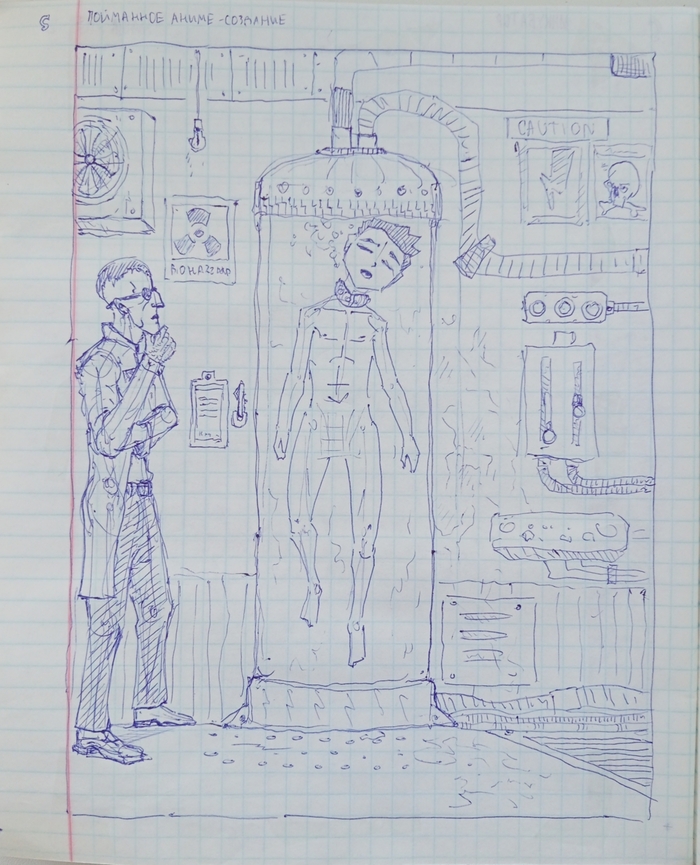 5
ПОЙМАННОЕ АНИМЕ-СОЗДАНИЕ
CAUTION